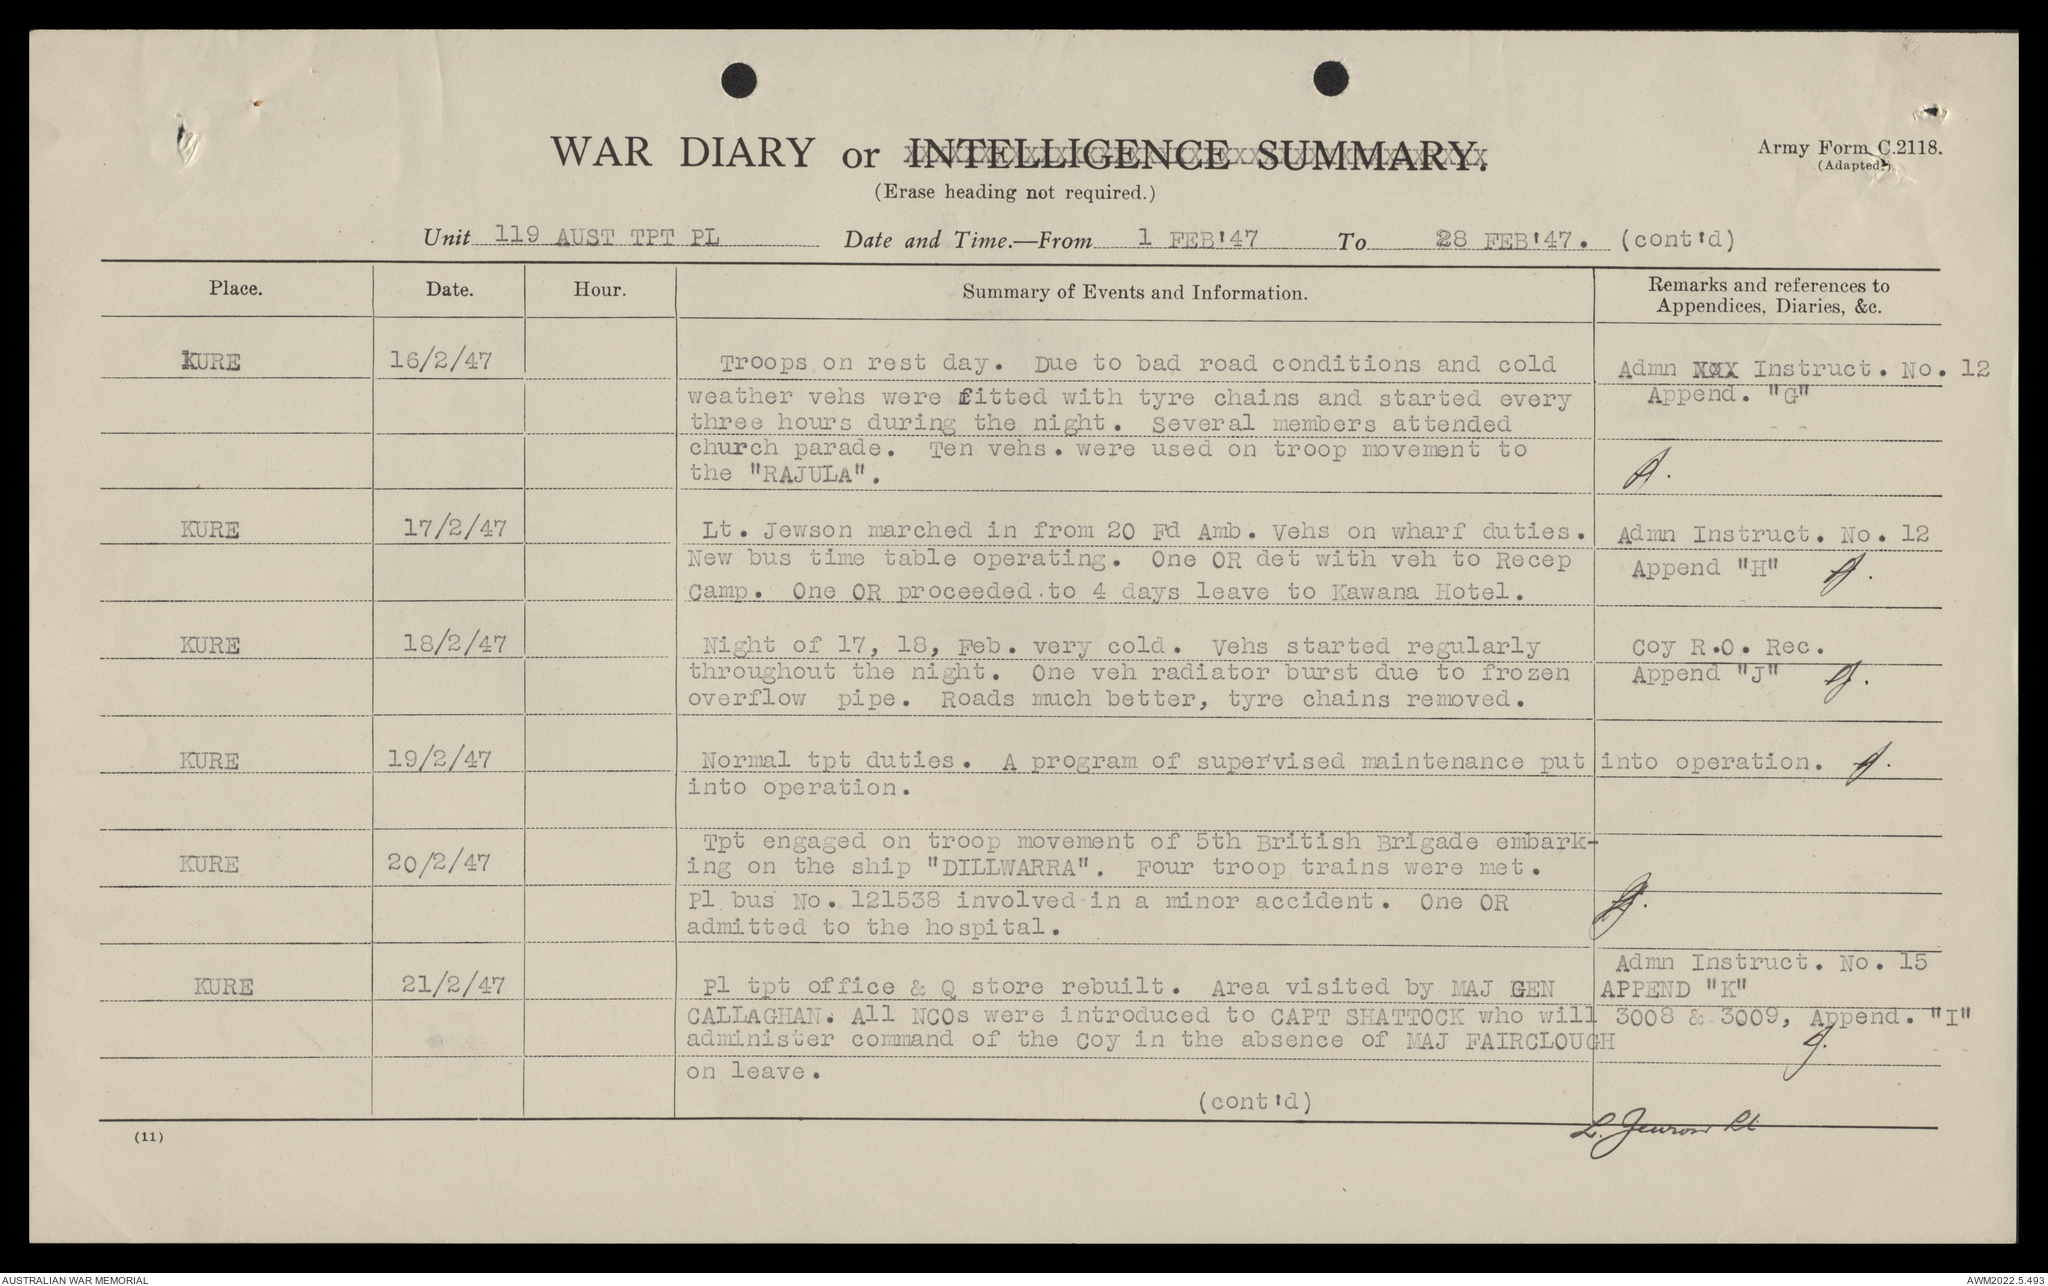 WAR DIARY or INTELLIGENCE SUMMARY.
Army Form C.2118.
(Adapted.)
(Erase heading not required.)
Unit 119 AUST TPT PL Date and Time.—From 1 FEB'47 To 28 FEB'47. (cont'd)
Place. Date. Hour. Summary of Events and Information. Remarks and references to
Appendices, Diaries, &c.
KURE 16/2/47 Troops on rest day. Due to bad road conditions and cold Admn XXX Instruct. No. 12
weather vehs were fitted with tyre chains and started every Append. "G"
three hours during the night. Several members attended
church parade. Ten vehs. were used on troop movement to
the "RAJULA". J.
KURE 17/2/47 Lt. Jewson marched in from 20 Fd Amb. Vehs on wharf duties. Admn Instruct. No. 12
New bus time table operating. One OR det with veh to Recep Append "H" J.
Camp. One OR proceeded to 4 days leave to Kawana Hotel.
KURE 18/2/47 Night of 17, 18, Feb. very cold. Vehs started regularly Coy R.O. Rec.
throughout the night. One veh radiator burst due to frozen Append "J" J.
overflow pipe. Roads much better, tyre chains removed.
KURE 19/2/47 Normal tpt duties. A program of supervised maintenance put into operation. J.
into operation.
KURE 20/2/47 Tpt engaged on troop movement of 5th British Brigade embark-
ing on the ship "DILLWARRA". Four troop trains were met.
Pl bus No. 121538 involved in a minor accident. One OR J.
admitted to the hospital.
Admn Instruct. No. 15
KURE 21/2/47 Pl tpt office & Q store rebuilt. Area visited by MAJ GEN APPEND "K"
CALLAGHAN. All NCOs were introduced to CAPT SHATTOCK who will 3008 & 3009, Append. "I"
administer command of the Coy in the absence of MAJ FAIRCLOUGH J.
on leave.
(cont'd)
L. Jewson Lt
(11)
AUSTRALIAN WAR MEMORIAL
AWM2022.5.493